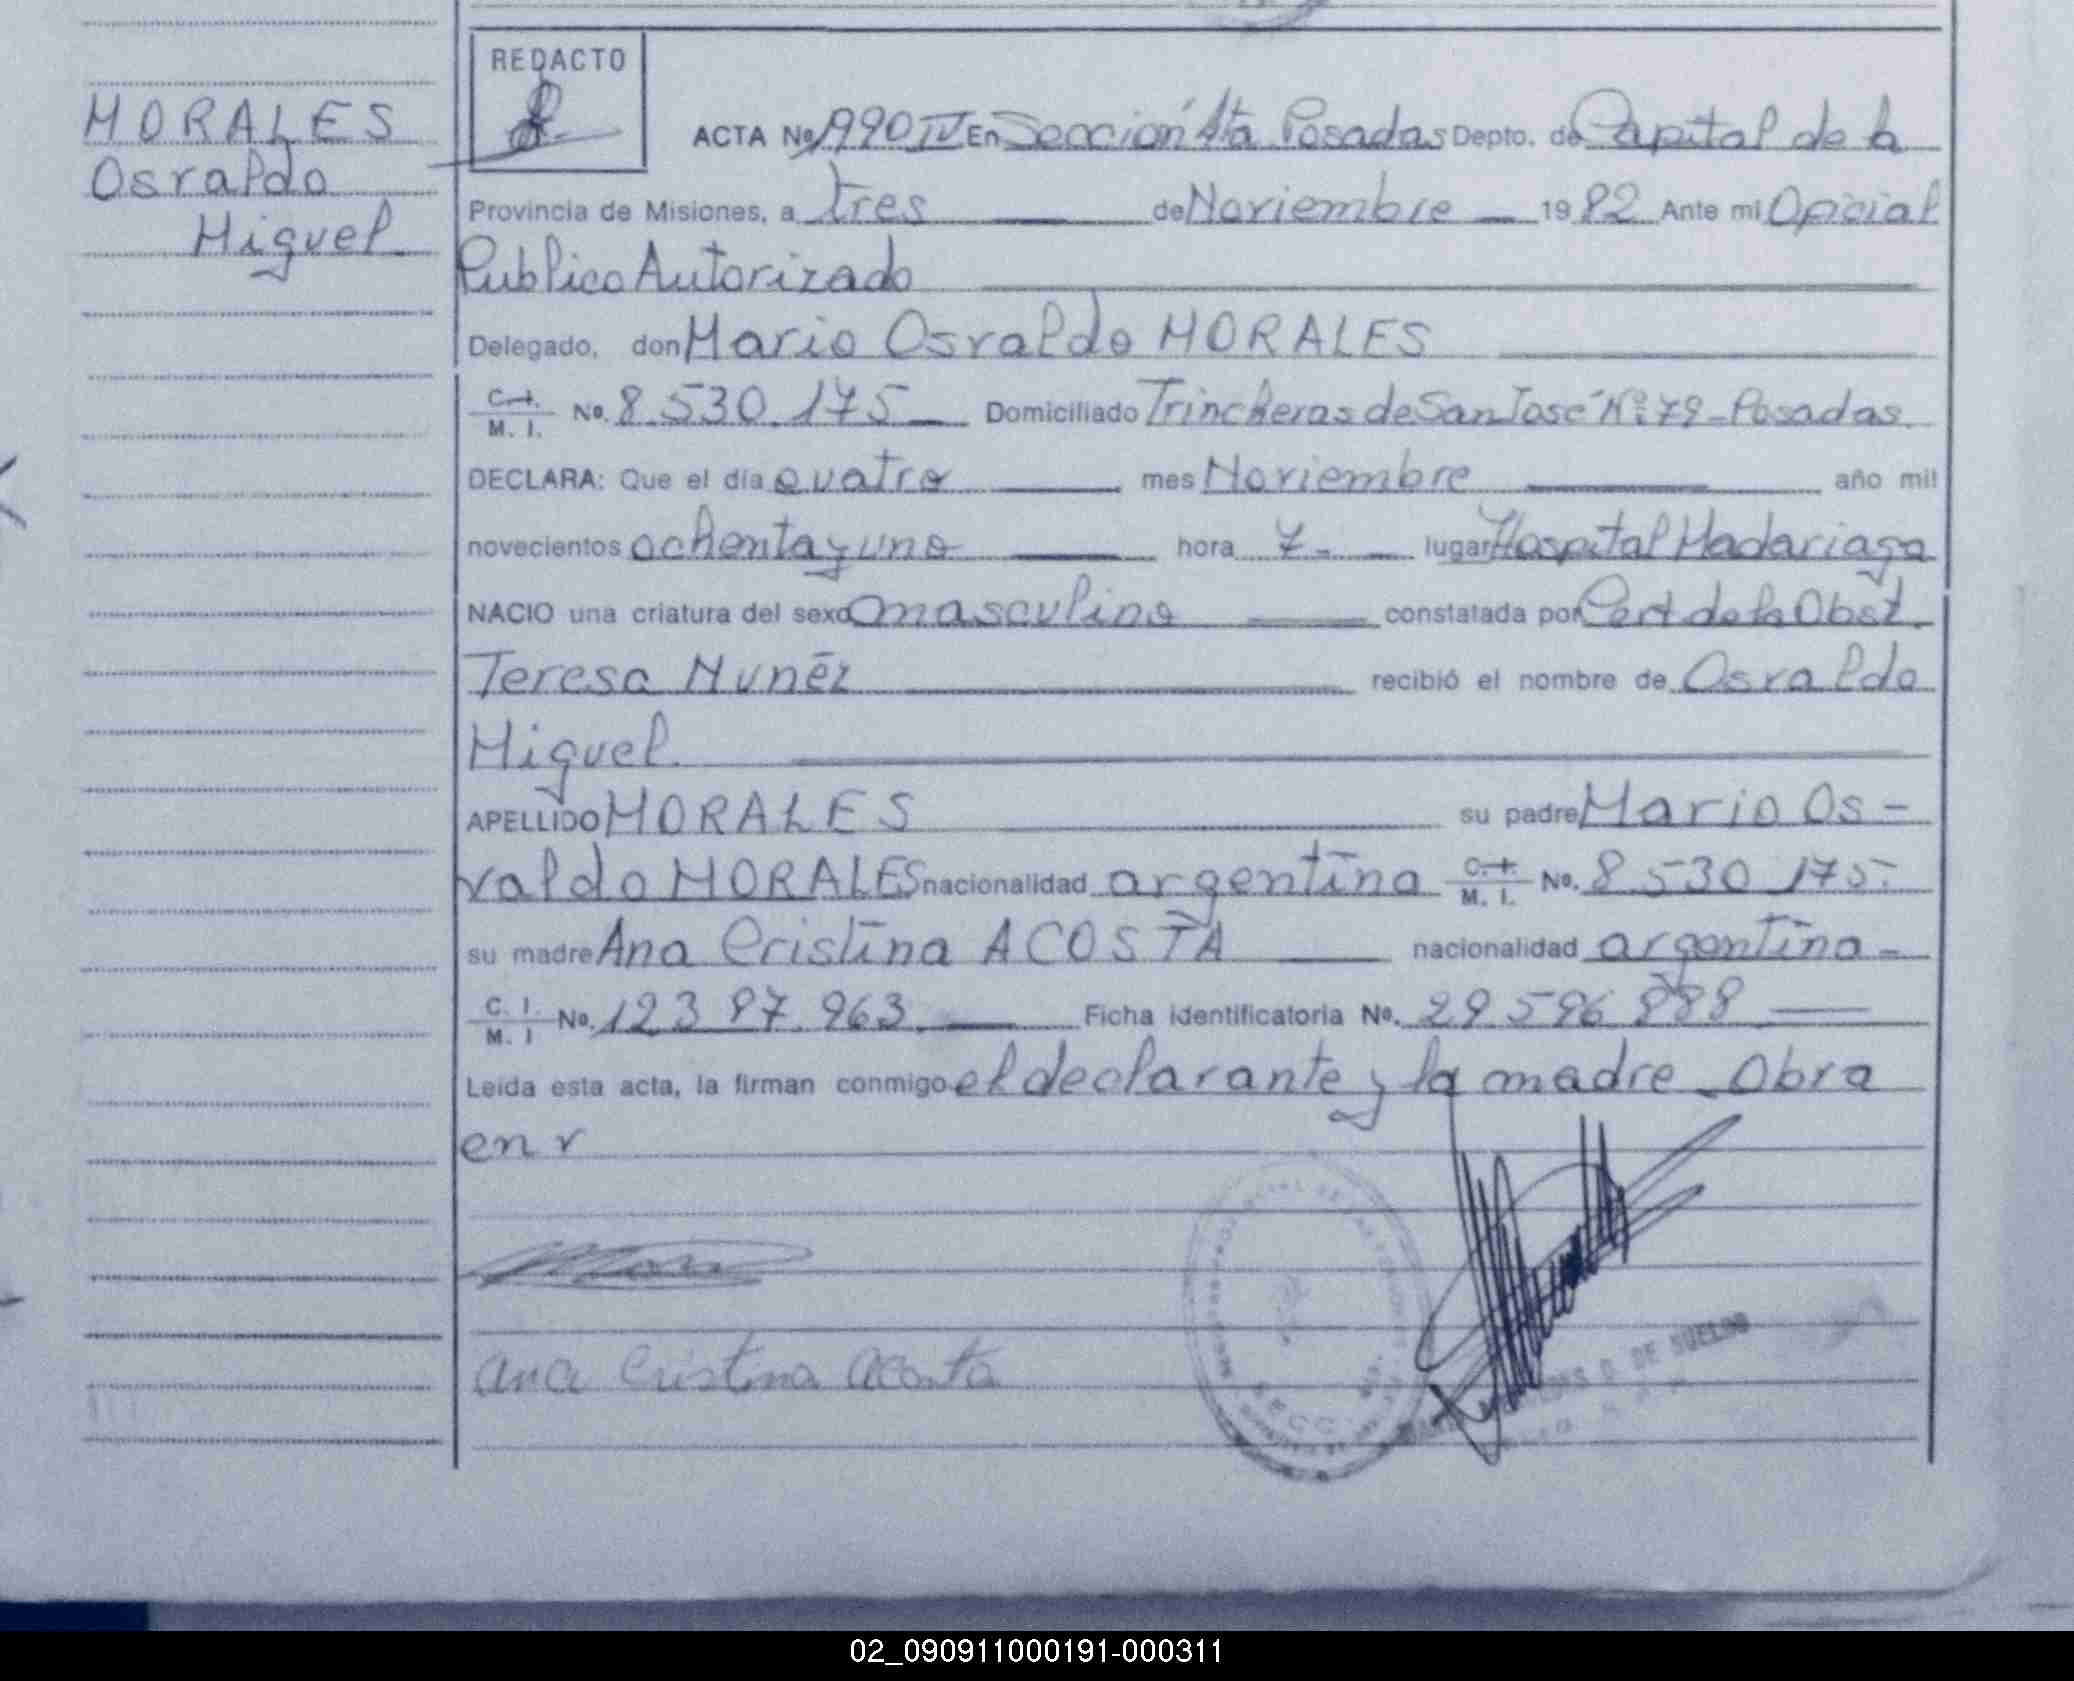 MORALES
Osvaldo
Miguel
REDACTO
ACTA No 1990 IV En Sección 4ta Posadas Depto. de Capital de la
Provincia de Misiones, a tres de Noviembre 1982 Ante mi Oficial
Publico Autorizado
Delegado, don Mario Osvaldo MORALES
C. I. M. I. No. 8.530.175 Domiciliado Trincheras de San José Nº 79 - Posadas.
DECLARA: Que el día cuatro mes Noviembre año mil
novecientos ochenta y uno hora 7- lugar Hospital Madariaga
NACIO una criatura del sexo masculino constatada por Cert de la Obst.
Teresa Nuñez recibió el nombre de Osvaldo
Miguel
APELLIDO MORALES su padre Mario Os-
valdo MORALES nacionalidad argentina C. I. M. I. No. 8.530.175.
su madre Ana Cristina ACOSTA nacionalidad argentina -
C. I. M. I No. 12.387.963. Ficha identificatoria No. 29.596.888
Leída esta acta, la firman conmigo el declarante y la madre. Obra
en v
Ana Cristina Acosta
DE SUELDO
02_090911000191-000311